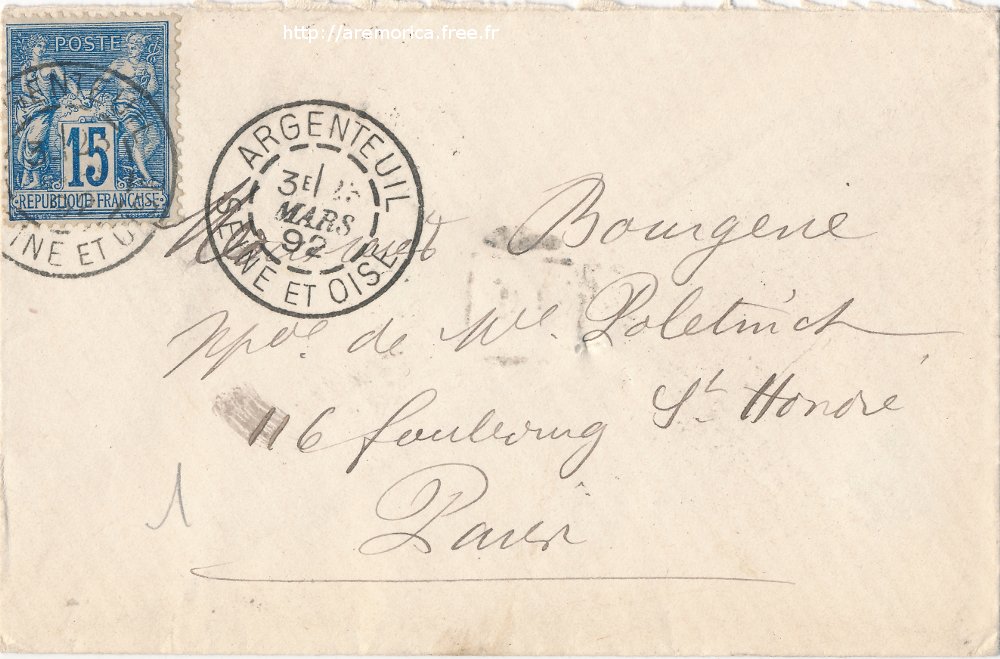 http://aremorica.free.fr
POSTE
15
REPUBLIQUE FRANÇAISE
ARGENTEUIL
3E
MARS
92
SEINE ET OISE
Bourgene
de Poletnich
116 faubourg St Honoré
Paris
1